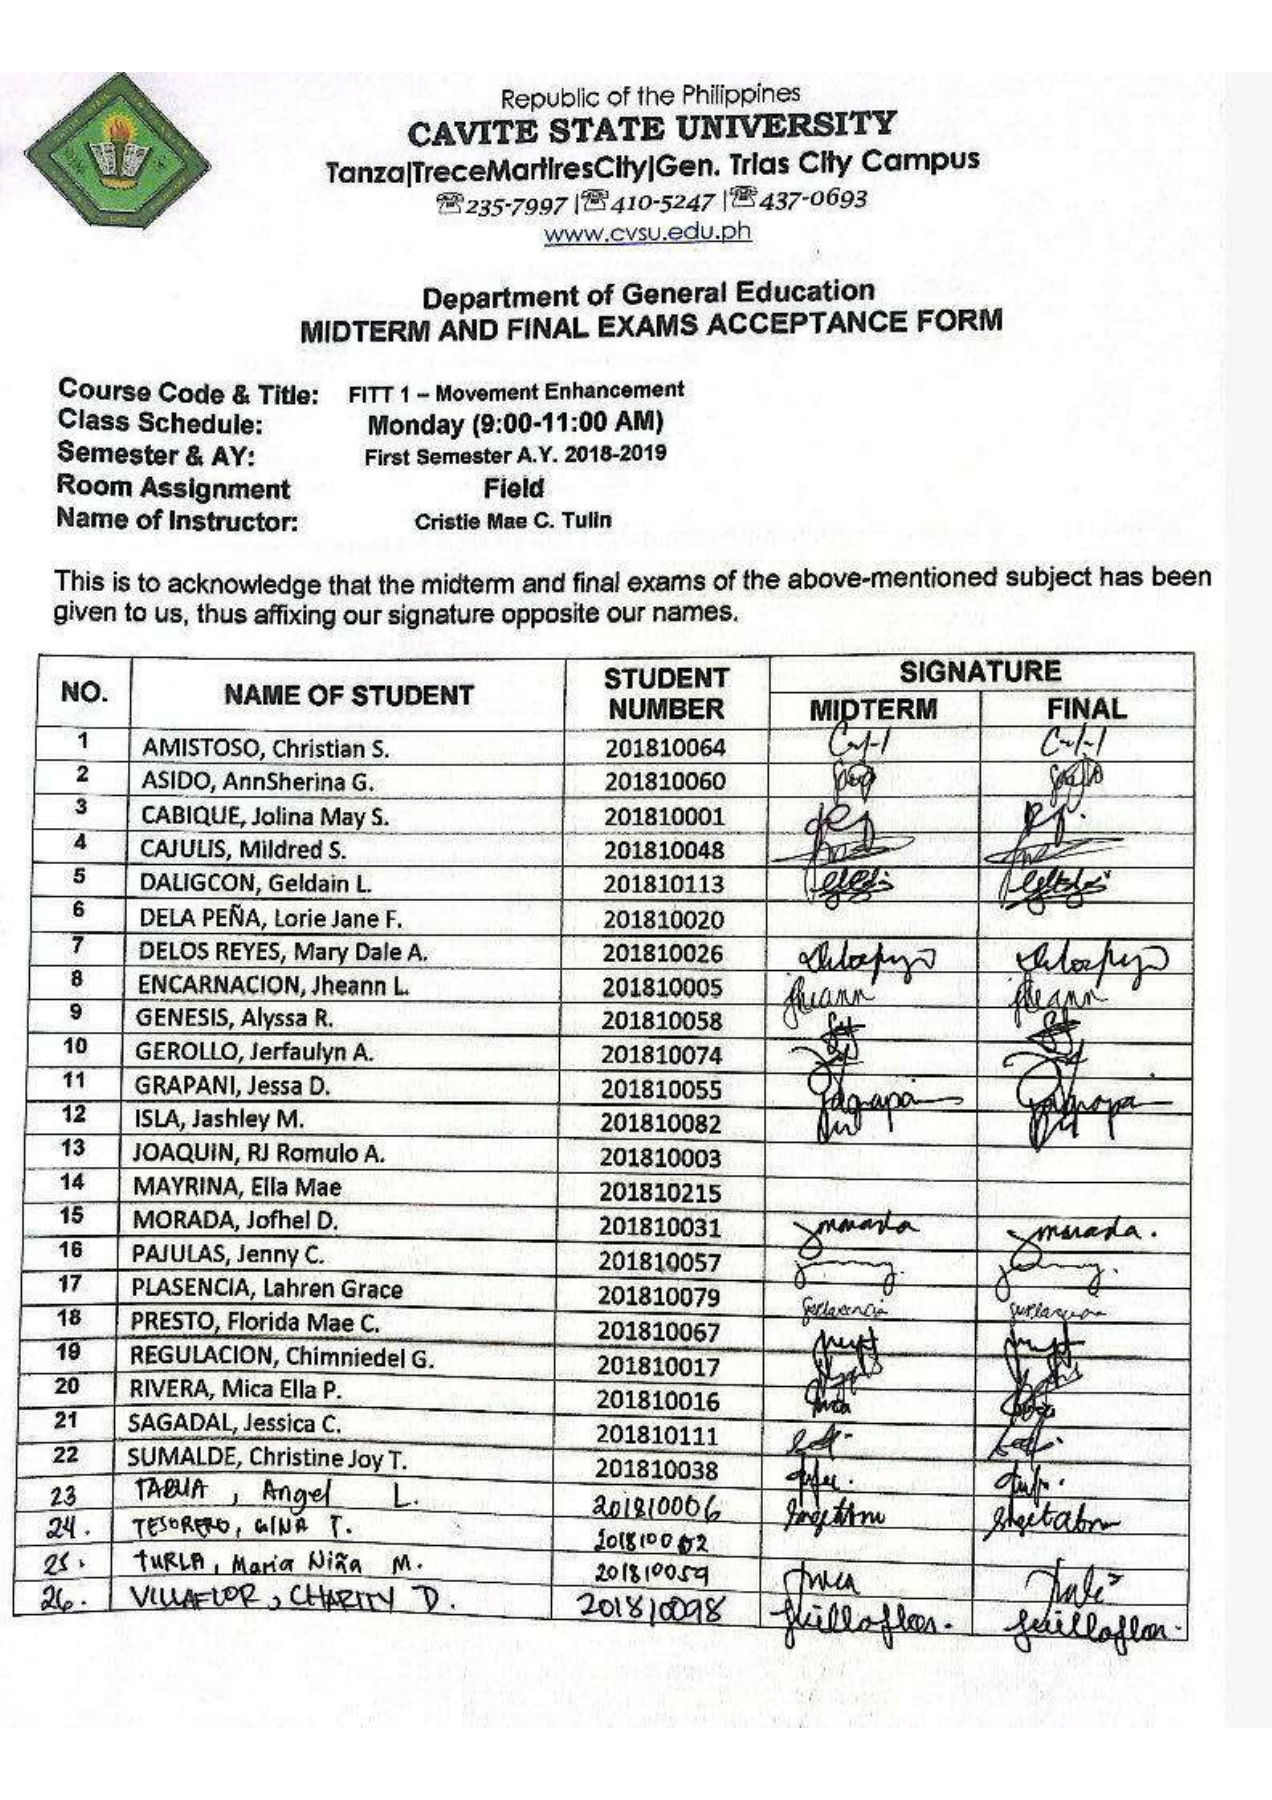 Republic of the Philippines
CAVITE STATE UNIVERSITY
Tanza|TreceMartiresCity|Gen. Trias City Campus
☏235-7997 |☏410-5247 |☏437-0693
www.cvsu.edu.ph
Department of General Education
MIDTERM AND FINAL EXAMS ACCEPTANCE FORM
Course Code & Title: FITT 1 – Movement Enhancement
Class Schedule: Monday (9:00-11:00 AM)
Semester & AY: First Semester A.Y. 2018-2019
Room Assignment Field
Name of Instructor: Cristie Mae C. Tulin
This is to acknowledge that the midterm and final exams of the above-mentioned subject has been
given to us, thus affixing our signature opposite our names.
NO. NAME OF STUDENT STUDENT NUMBER SIGNATURE
MIDTERM FINAL
1 AMISTOSO, Christian S. 201810064
2 ASIDO, AnnSherina G. 201810060
3 CABIQUE, Jolina May S. 201810001
4 CAJULIS, Mildred S. 201810048
5 DALIGCON, Geldain L. 201810113
6 DELA PEÑA, Lorie Jane F. 201810020
7 DELOS REYES, Mary Dale A. 201810026
8 ENCARNACION, Jheann L. 201810005 jheann jheann
9 GENESIS, Alyssa R. 201810058
10 GEROLLO, Jerfaulyn A. 201810074
11 GRAPANI, Jessa D. 201810055
12 ISLA, Jashley M. 201810082
13 JOAQUIN, RJ Romulo A. 201810003
14 MAYRINA, Ella Mae 201810215
15 MORADA, Jofhel D. 201810031 jmorada jmorada.
16 PAJULAS, Jenny C. 201810057
17 PLASENCIA, Lahren Grace 201810079
18 PRESTO, Florida Mae C. 201810067
19 REGULACION, Chimniedel G. 201810017
20 RIVERA, Mica Ella P. 201810016
21 SAGADAL, Jessica C. 201810111
22 SUMALDE, Christine Joy T. 201810038
23 TABUA, Angel L. 201810006
24. TESORERO, GINA T. 201810002
25. TURLA, Maria Niña M. 201810059
26. VILLAFLOR, CHARITY D. 201810098